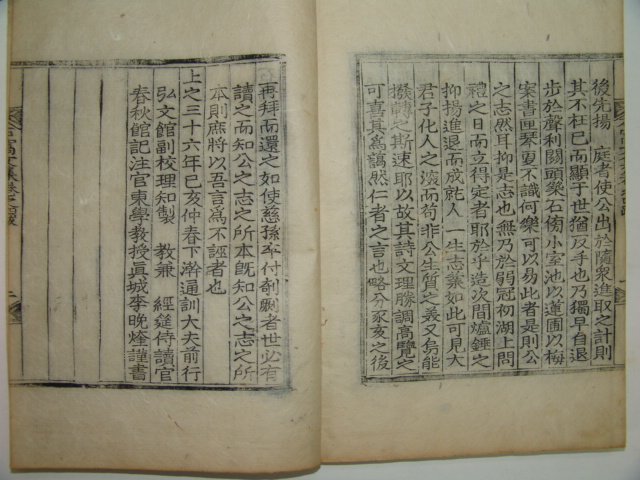 後先揚 庭者使公出於隨衆進取之計則
其不枉己而顯于世猶反手也乃獨早自退
步於聲利關頭築石傍小室池以蓮圃以梅
案書匣琴夏不識何樂可以易此者是則公
之志然耳抑是志也無乃於弱冠初湖上問
禮之日而立得定者耶於乎造次間爐錘之
抑揚進退而成就人一生志業如此可見大
君子化人之深而苟非公生質之義又烏能
撥轉之斯速耶以故其詩文理勝調高覽之
可喜其爲藹然仁者之言也略分豕亥之後
再拜而還之如使慈孫卒付剞劂者世必有
讀之而知公之志之所本旣知公之志之所
本則庶將以吾言爲不誣者也
上之三十六年己亥仲春下澣通訓大夫前行
弘文館副校理知製 敎兼 經筵侍讀官
春秋館記注官東學敎授眞城李晚煃謹書